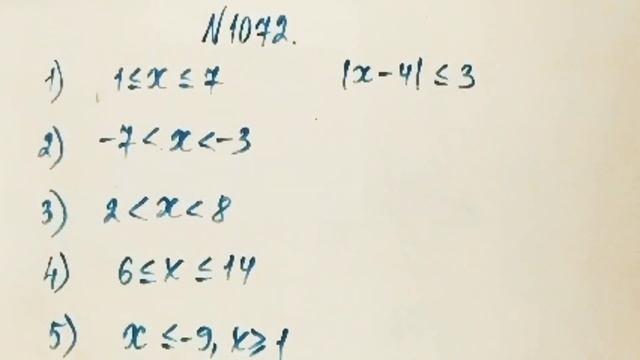 N1072.
1) 1 ≤ x ≤ 7 |x - 4| ≤ 3
2) -7 < x < -3
3) 2 < x < 8
4) 6 ≤ x ≤ 14
5) x ≤ -9, x ≥ 1